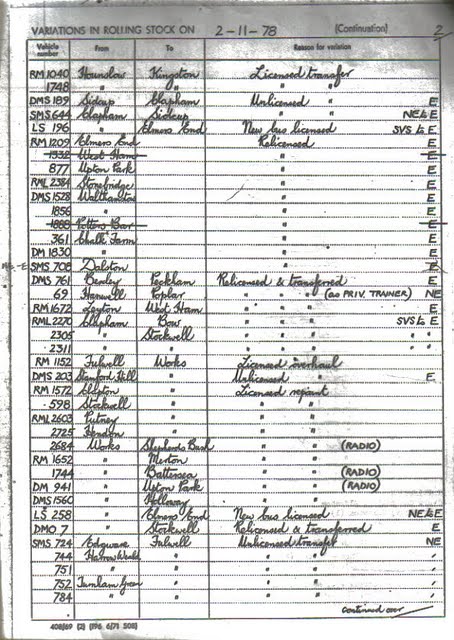 VARIATIONS IN ROLLING STOCK ON 2-11-78 (Continuation) 2
Vehicle number From To Reason for variation
RM 1040 Hounslow Kingston Licensed transfer
1748 " " " "
DMS 189 Sidcup Clapham Unlicensed " E
SMS 644 Clapham Sidcup " " NE to E
LS 196 " Elmers End New bus licensed SVS to E
RM 1209 Elmers End Relicensed E
1332 West Ham " E
877 Upton Park " E
RML 2384 Stonebridge " E
DMS 1528 Walthamstow " E
1856 " " E
1868 Potters Bar " E
361 Chalk Farm " E
DM 1830 " " E
SMS 708 Dalston " E
DMS 761 Bexley Peckham Relicensed & transferred E
69 Hanwell Poplar " " " (as PRIV. TRAINER) NE
RM 1672 Leyton West Ham " " " E
RML 2270 Clapham Bow " " " SVS to E
2305 " Stockwell " " " " "
2311 " " " " " " "
RM 1152 Fulwell Works Licensed overhaul
DMS 203 Stamford Hill " Unlicensed " E
RM 1572 Clapton " Licensed repaint
598 Stockwell " " "
RML 2603 Putney " " "
2725 Hendon " " "
2684 Works Shepherds Bush " " (RADIO)
RM 1652 " Merton " "
1744 " Battersea " " (RADIO)
DM 941 " Upton Park " " (RADIO)
DMS 1560 " Holloway " "
LS 258 " Elmers End New bus licensed NE to E
DMO 7 " Stockwell Relicensed & transferred E
SMS 724 Edgware Fulwell Unlicensed transfer NE
744 Harrow Weald " " " "
751 " " " " "
752 Turnham Green " " " "
784 " " " " "
continued over
408/69 (2) (196 6/71 508)